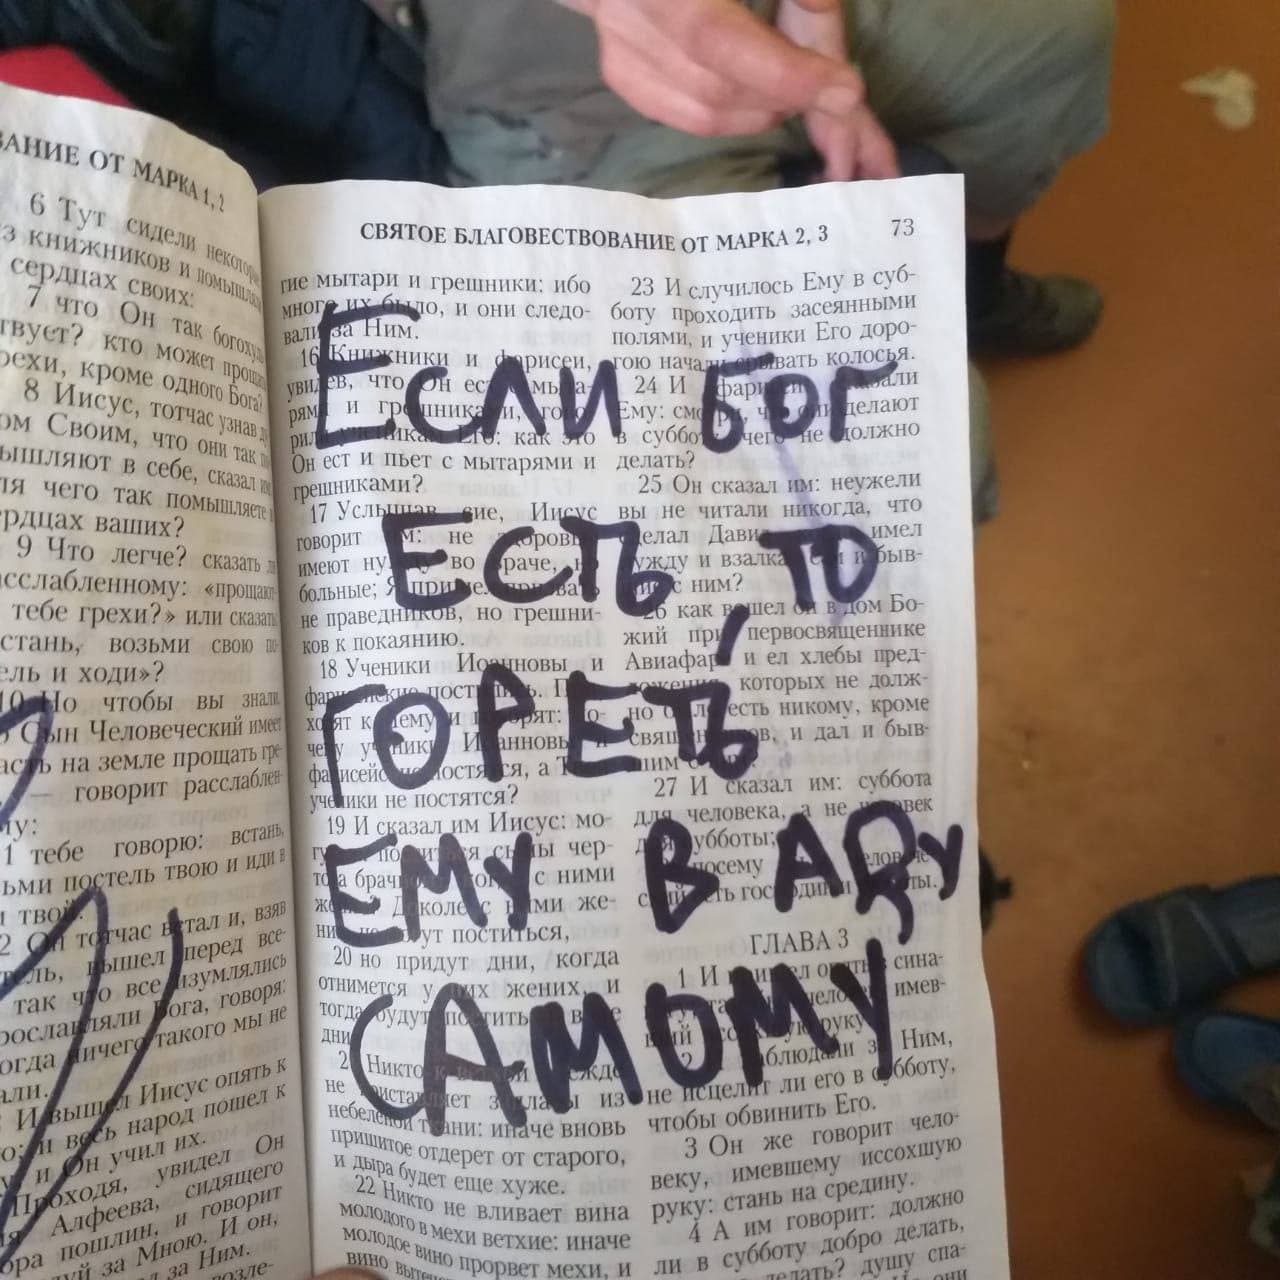 ВАНИЕ ОТ МАРКА 1, 2
6 Тут сидели
из книжников и
сердцах своих:
7 что Он так
кто может
кроме одного Бога?
8 Иисус, тотчас узнав
Своим, что они так
в себе, сказал
чего так помышляете
ваших?
9 Что легче? сказать
тебе грехи?» или сказать
возьми свою
и ходи»?
10 Но чтобы вы знали,
Сын Человеческий имеет
на земле прощать
— говорит
тебе говорю: встань,
постель твою и иди в
твой.
Он тотчас встал и, взяв
вышел перед все-
так что все изумлялись
Бога, говоря:
ничего такого мы не
И вышел Иисус опять к
и весь народ пошел к
и Он учил их.
Проходя, увидел Он
Алфеева, сидящего
пошлин, и говорит
за Мною. И он,
за Ним.
СВЯТОЕ БЛАГОВЕСТВОВАНИЕ ОТ МАРКА 2, 3 73
гие мытари и грешники: ибо
много их было, и они следо-
вали за Ним.
16 Книжники и фарисеи,
увидев, что Он ест с мыта-
рями и грешниками, гово-
рили ученикам Его: как это
Он ест и пьет с мытарями и
грешниками?
17 Услышав сие, Иисус
говорит им: не здоровые
имеют нужду во враче, но
больные; Я пришел призвать
не праведников, но грешни-
ков к покаянию.
18 Ученики Иоанновы и
фарисейские постились. При-
ходят к Нему и говорят: по-
чему ученики Иоанновы и
фарисейские постятся, а Твои
ученики не постятся?
19 И сказал им Иисус: мо-
гут ли поститься сыны чер-
тога брачного, когда с ними
жених? Доколе с ними же-
них, не могут поститься,
20 но придут дни, когда
отнимется у них жених, и
тогда будут поститься в те
дни.
21 Никто к ветхой одежде
не приставляет заплаты из
небеленой ткани: иначе вновь
пришитое отдерет от старого,
и дыра будет еще хуже.
22 Никто не вливает вина
молодого в мехи ветхие: иначе
молодое вино прорвет мехи, и
вино
23 И случилось Ему в суб-
боту проходить засеянными
полями, и ученики Его доро-
гою начали срывать колосья.
24 И фарисеи сказали
Ему: смотри, что они делают
в субботу, чего не должно
делать?
25 Он сказал им: неужели
вы не читали никогда, что
сделал Давид, когда имел
нужду и взалкал сам и быв-
шие с ним?
26 как вошел он в дом Бо-
жий при первосвященнике
Авиафаре и ел хлебы пред-
ложения, которых не долж-
но было есть никому, кроме
священников, и дал и быв-
шим с ним?
27 И сказал им: суббота
для человека, а не человек
для субботы;
28 посему Сын Человече-
ский есть господин и субботы.
ГЛАВА 3
1 И пришел опять в сина-
гогу; там был человек, имев-
ший иссохшую руку.
2 И наблюдали за Ним,
не исцелит ли его в субботу,
чтобы обвинить Его.
3 Он же говорит чело-
веку, имевшему иссохшую
руку: стань на средину.
4 А им говорит: должно
ли в субботу добро делать,
делать? душу спа-
они
Если бог
есть, то
гореть
ему в аду
самому